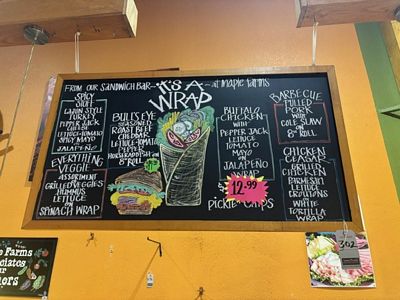 FROM OUR SANDWICH BAR
IT'S A
WRAP
at maple farms
SPICY
STUFF
CAJUN STYLE
TURKEY
PEPPER JACK
CHEESE
LETTUCE-TOMATO
SPICY MAYO
JALAPEÑO
EVERYTHING
VEGGIE
ASSORTMENT
GRILLED VEGGIES
HUMMUS
LETTUCE
SPINACH WRAP
BULL'S EYE
SEASONED
ROAST BEEF
CHEDDAR
LETTUCE-TOMATO
PEPPER
HORSERADISH
8" ROLL
BUFFALO
CHICKEN
WITH
PEPPER JACK
LETTUCE
TOMATO
MAYO
ON
JALAPEÑO
WRAP
12.99
PICKLE CHIPS
BARBECUE
PULLED
PORK
WITH
COLE SLAW
ON
8" ROLL
CHICKEN
CEASAR
GRILLED
CHICKEN
PARMESAN
LETTUCE
CROUTONS
ON
WHITE
TORTILLA
WRAP
302
Farms